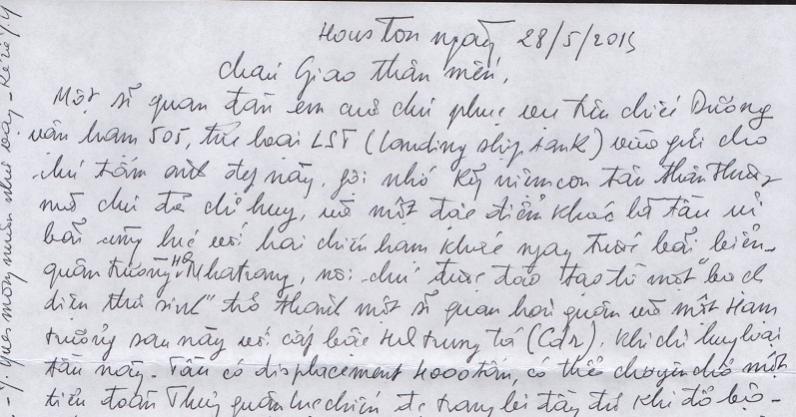 Houston ngày 28/5/2015
cháu Giao thân mến,
Một sĩ quan đàn em cũ chú phục vụ trên chiếc Dương
vận hạm 505, thuộc loại LST (landing ship tank) vừa gửi cho
chú tấm ảnh đẹp này, gợi nhớ kỷ niệm con tàu thân thương
mà chú đã chỉ huy, và một đặc điểm khác là tàu ủi
bãi cùng lúc với hai chiến hạm khác ngay trước bãi biển
quân trường HQ Nhatrang, nơi chú được đào tạo từ một "bạch
diện thư sinh" trở thành một sĩ quan hải quân và một Hạm
trưởng sau này với cấp bậc HQ trung tá (Cdr), khi chỉ huy loại
tàu này. Tàu có displacement 4000 tấn, có thể chuyên chở một
tiểu đoàn Thuỷ quân lục chiến để trang bị đầy đủ khi đổ bộ -